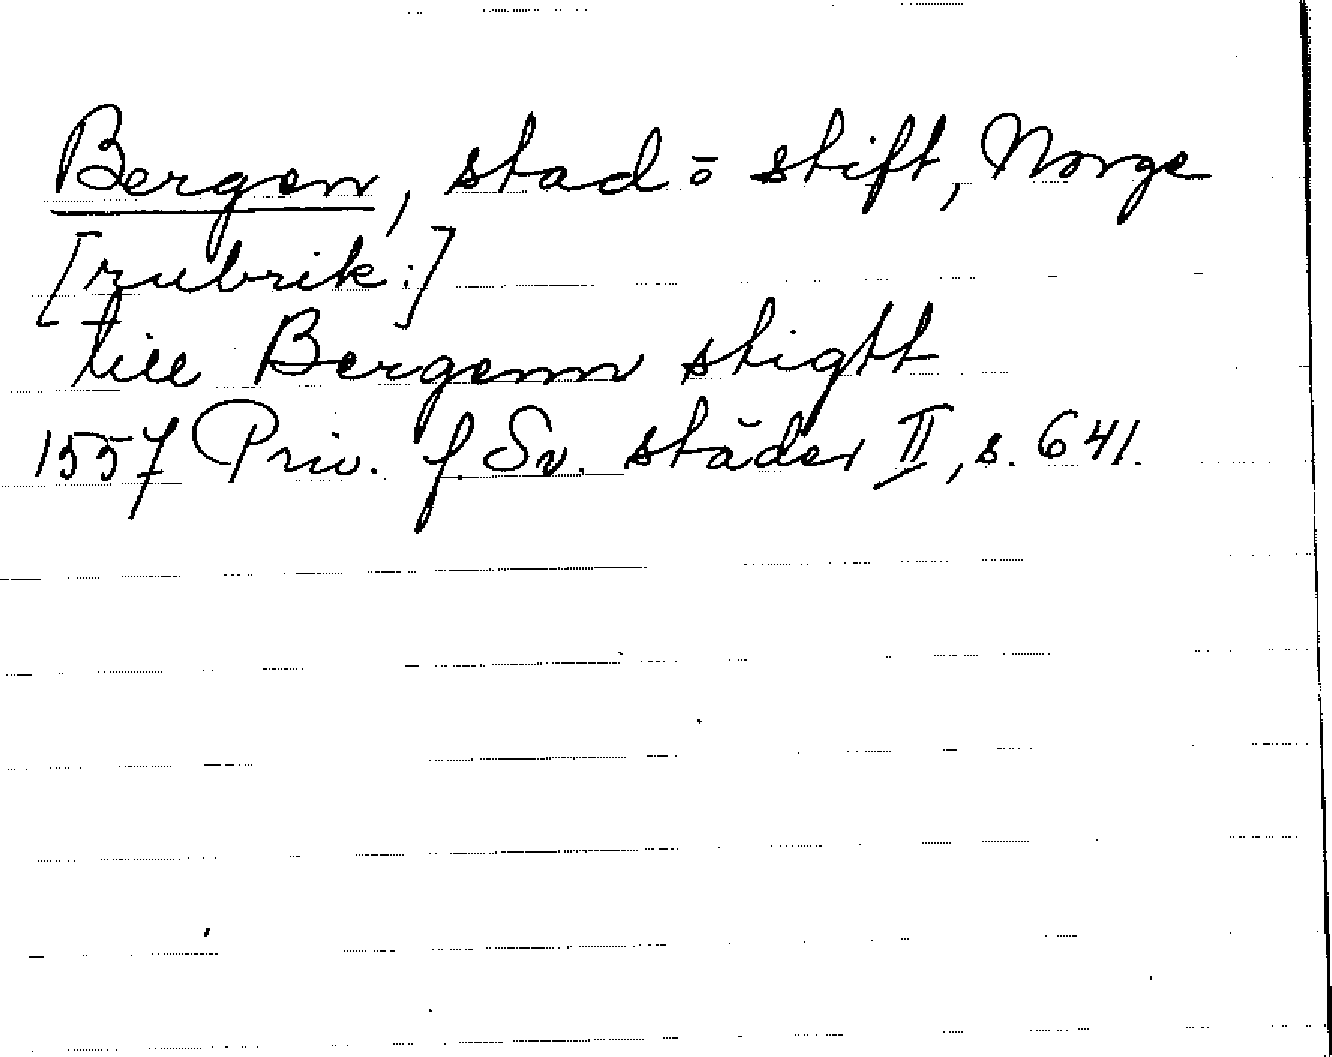 Bergen, stad o stift, Norge
[rubrik:]
till Bergenn stigtt
1557 Priv. f. Sv. städer II, s. 641.